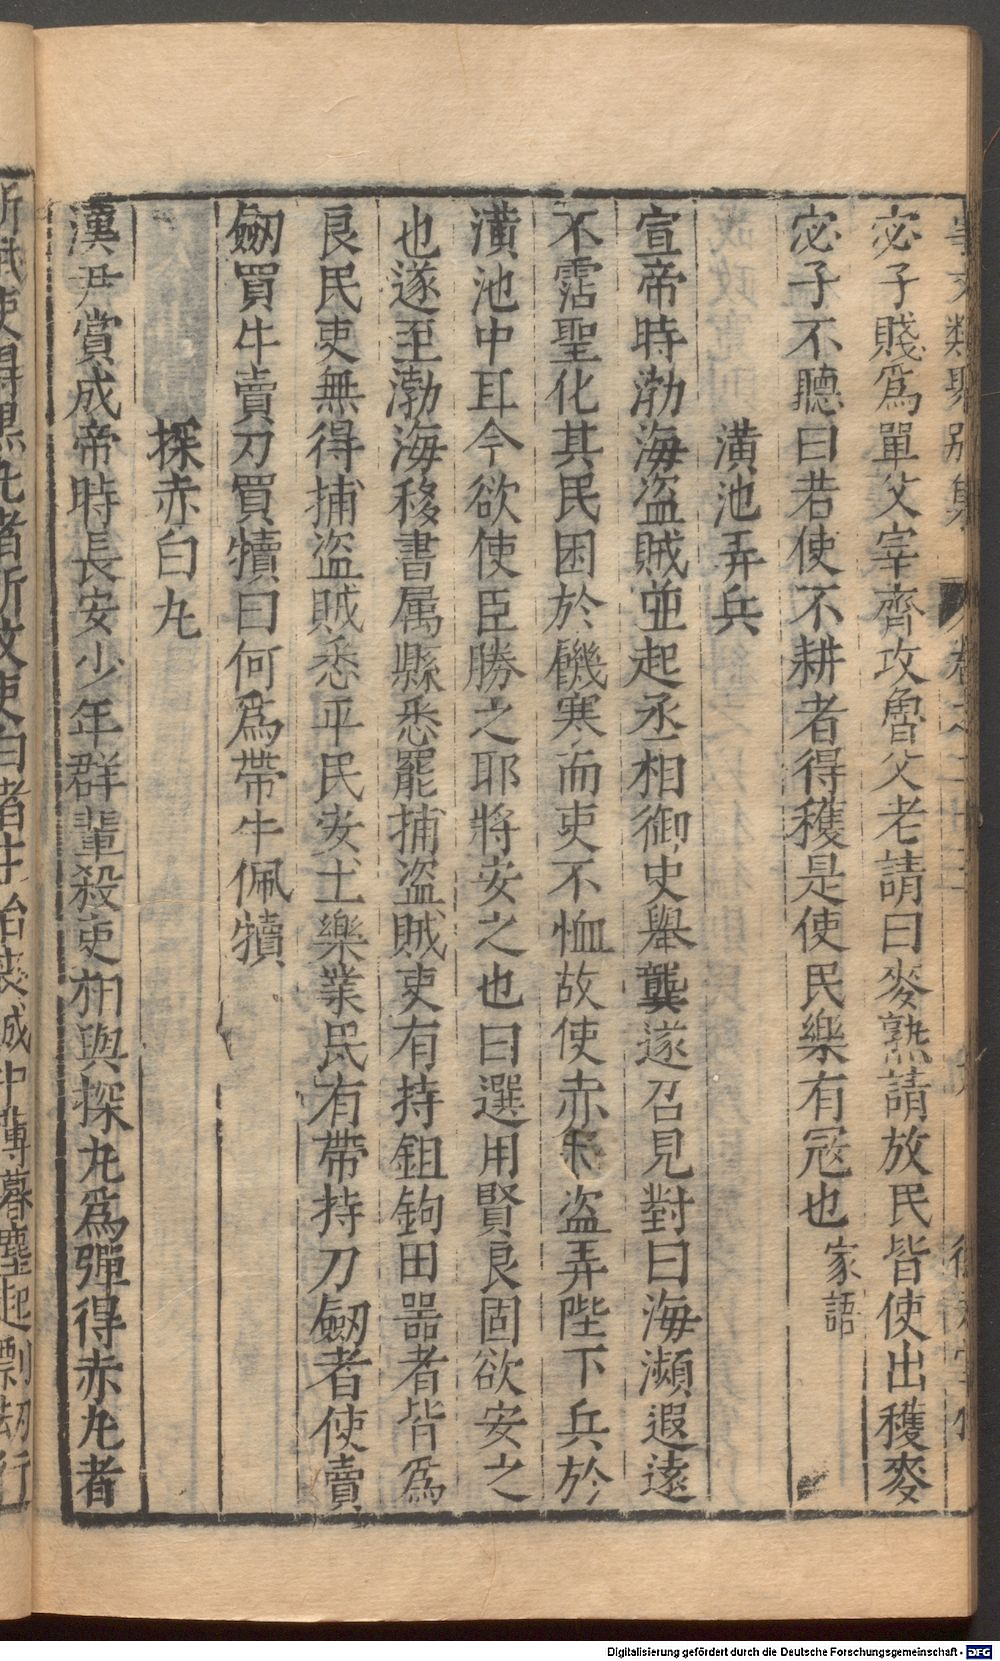 宓子賤爲單父宰齊攻魯父老請曰麥熟請放民皆使出穫麥
宓子不聽曰若使不耕者得穫是使民樂有冦也家語
潢池弄兵
宣帝時渤海盜賊並起丞相御史舉龔遂召見對曰海瀕遐遠
不霑聖化其民困於饑寒而吏不恤故使赤子盜弄陛下兵於
潢池中耳今欲使臣勝之耶將安之也曰選用賢良固欲安之
也遂至渤海移書属縣悉罷捕盜賊吏有持鉏鉤田噐者皆爲
良民吏無得捕盜賊悉平民安土樂業民有帶持刀劒者使賣
劒買牛賣刀買犢曰何爲帶牛佩犢
探赤白丸
漢尹賞成帝時長安少年群輩殺吏相與探丸爲彈得赤丸者
Digitalisierung gefördert durch die Deutsche Forschungsgemeinschaft - DFG